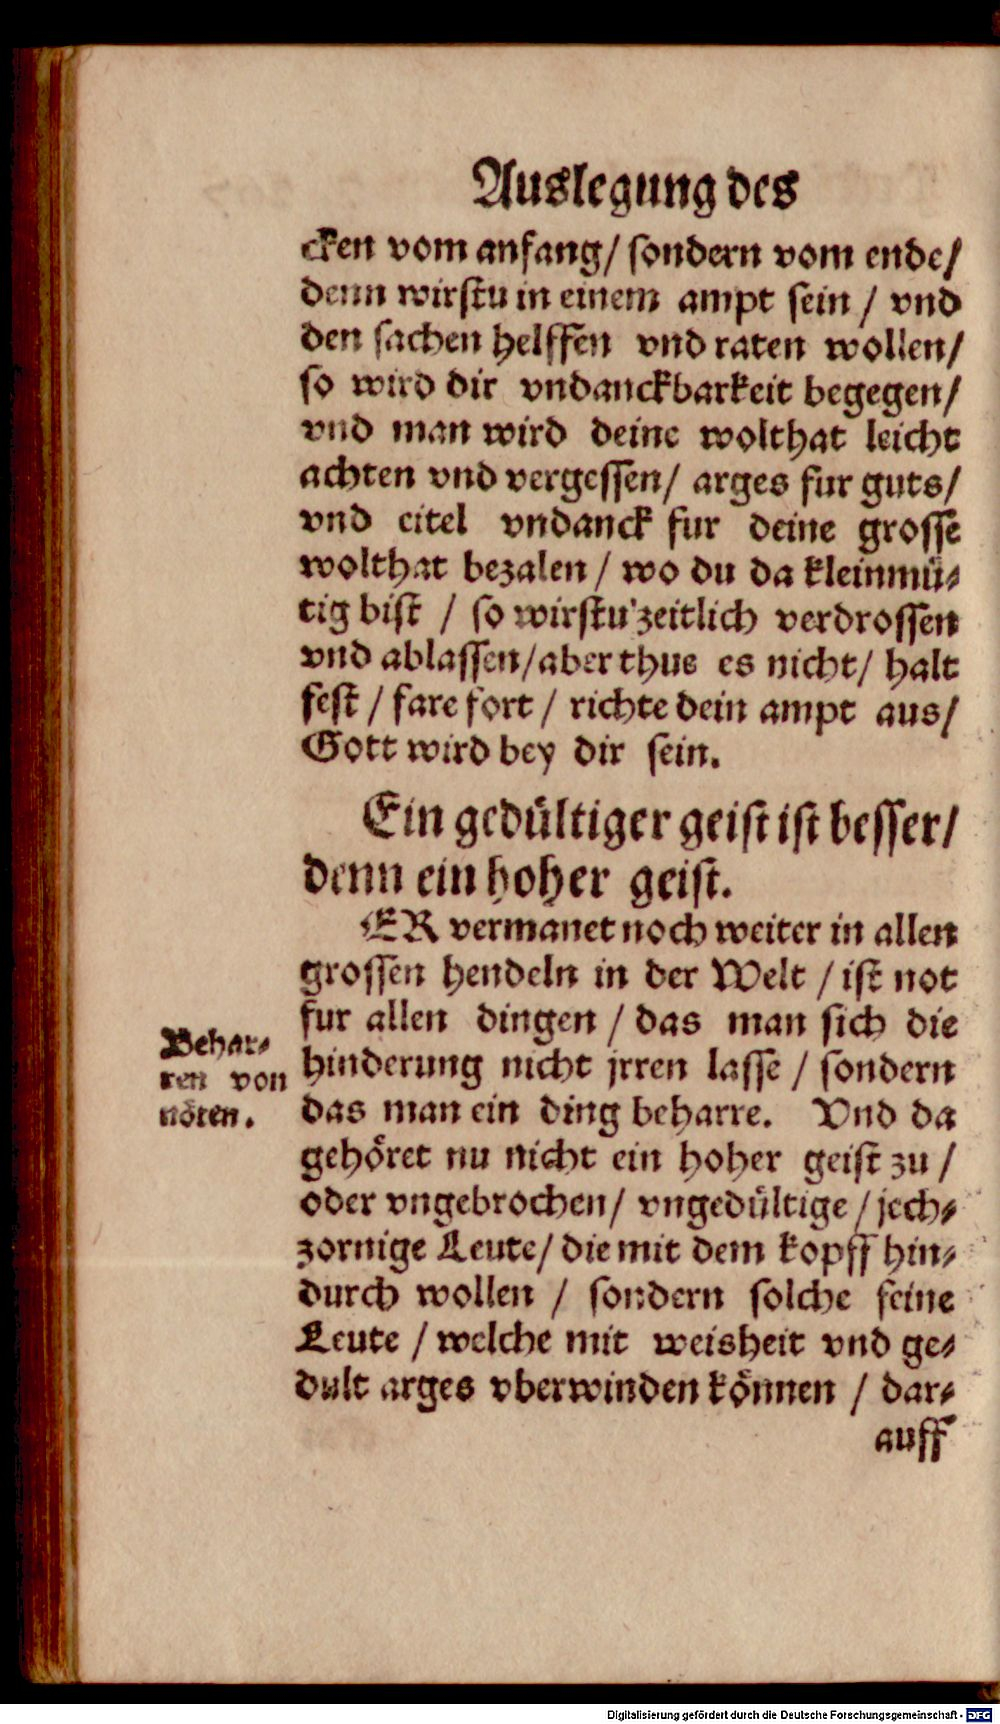 Auslegung des
cken vom anfang/ sondern vom ende/
denn wirstu in einem ampt sein / vnd
den sachen helffen vnd raten wollen/
so wird dir vndanckbarkeit begegen/
vnd man wird deine wolthat leicht
achten vnd vergessen/ arges fur guts/
vnd eitel vndanck fur deine grosse
wolthat bezalen / wo du da kleinmü-
tig bist / so wirstu zeitlich verdrossen
vnd ablassen/aber thue es nicht/ halt
fest / fare fort / richte dein ampt aus/
Gott wird bey dir sein.
Ein gedültiger geist ist besser/
denn ein hoher geist.
ER vermanet noch weiter in allen
grossen hendeln in der Welt / ist not
fur allen dingen / das man sich die
hinderung nicht jrren lasse / sondern
das man ein ding beharre. Vnd da
gehöret nu nicht ein hoher geist zu /
oder vngebrochen/ vngedültige / jech-
zornige Leute/ die mit dem kopff hin-
durch wollen / sondern solche feine
Leute / welche mit weisheit vnd ge-
dult arges vberwinden können / dar-
auff
Behar-
ren von
nöten.
Digitalisierung gefördert durch die Deutsche Forschungsgemeinschaft - DFG